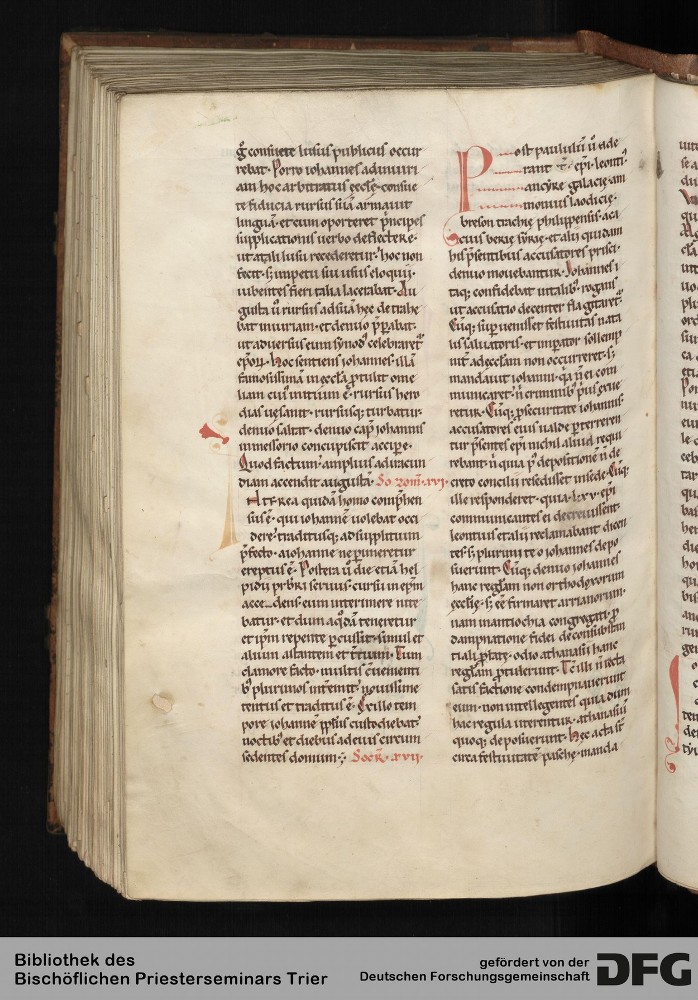 g̃ consuete lusus publicus occur
rebat. Porro iohannes adiniuri
am hoc arbitratus ęcclę. consue
te fiducia rursus suā armauit
linguā. et cum oporteret p̃ncipes
supplicationis uerbo deflectere.
ut atali lusu recederetur. hoc non
fecit. s; impetu siu usus eloquij.
iubentes fieri talia lacerabat. Au
gusta ũ rursus adsuā hęc detrahe
bat iniuriam. et denuo p̃parabat.
ut aduersus eum synodꝰ celebraret̃
ep̃oꝝ. hoc sentiens iohannes. illā
famosissimā inęccl̃a ꝓtulit ome
liam cuiꝰ initium ē. rursus hero
dias uęsanit. rursusq; turbatur.
denuo saltat. denuo capꝰ iohannis
inmessorio concupiscit accipe.
Quod factum. amplius adiracun
diam accendit augustā. Sozom̃. xvi.
Altrea quidā homo comp̃hen
sus ē. qui iohannē uolebat occi
dere. traditusq; ad supplitium
p̃fecto. aiohanne ne ꝑimeretur
ereptus ē. Postera ũ die etiā hel
pidii pr̃bri seruus. cursu in ep̃m
acce dens eum interimere nite
batur. et dum aq̃dā teneretur
et ip̃m repente ꝑcussit. simul et
alium astantem et t̃tium. Tum
clamore facto. multis c̃uementi
bꝰ plurimos int̃emit. nouissime
tentus et traditus ē. Ex illo tem
pore iohannē ꝓp̃sius custodiebat̃
noctibꝰ et diebus adeuis circum
sedentes domum. Socr̃. xvii.
Post paululū ũ ade
rant ep̃i. leontiꝰ
ancyrę galacię. am
monius laodicię.
breson trachię philippensis. aca
scius berię syrię. et alij quidam
his p̃sentibus accusatores prisci.
denuo mouebantur. Iohannes i
taq; confidebat uitalibꝰ. rogans
ut accusatio decenter flagitaret̃.
Cūq; suꝑuenisset festiuitas nata
lis saluatoris. et imperator sollemp
nit̃ adęccl̃am non occurreret. s;
mandauit iohanni. q̃a ñ ei com
municaret. ñ criminibꝰ p̃us exue
retur. Cūq; ꝓsecuritate iohannis
accusatores eius ualde ꝑterreren
tur p̃sentes ep̃i nichil aliud requi
rebant. ñ quia pꝰ depositionē ñ de
creto concilii resedisset insede. Cūq;
ille responderet. quia lxv. ep̃i
communicantes ei decreuissent
leontius et alij reclamabant dicen
tes. s; plurimi te o iohannes depo
suerunt. Cūq; denuo iohannes
hanc regl̃am non orthodoxorum
ęcclię. s; eē firmaret arrianorum.
nam inantiochia congregati ꝓ
dampnatione fidei de consubstan
tiali ꝓlate. odio athanasii hanc
regl̃am ꝓtulerunt. Tc̃ illi ũ recta
satis factione condempnauerunt
eum. non intellegentes quia dum
hac regula uterentur. athanasiū
quoq; deposuerunt. Hęc acta st̃
circa festiuitatē paschę. manda
Bibliothek des
Bischöflichen Priesterseminars Trier
gefördert von der
Deutschen Forschungsgemeinschaft
DFG